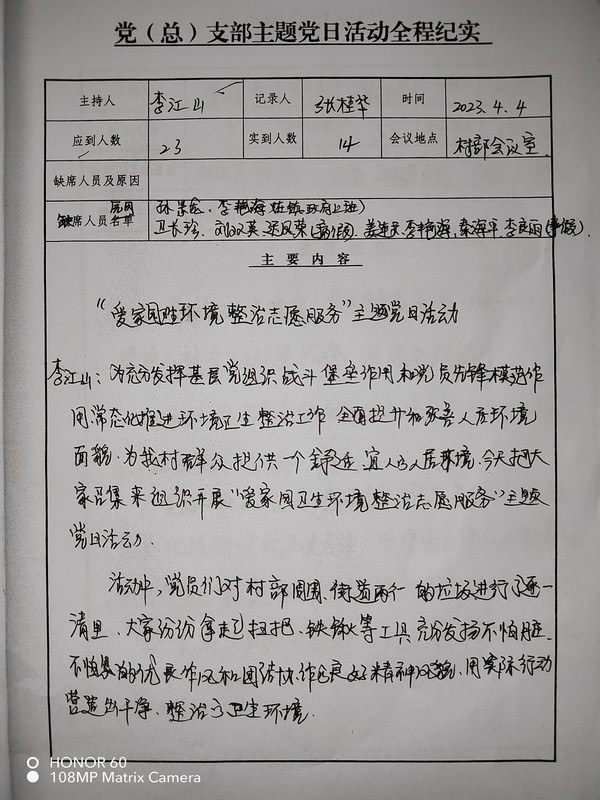 党（总）支部主题党日活动全程纪实
主持人 李江山 记录人 张桂华 时间 2023.4.4
应到人数 23 实到人数 14 会议地点 村部会议室
缺席人员及原因
缺席人员名单 李艳海 镇政府上班）
卫长珍、刘汉英、梁凤荣（病假）、李艳海、秦海平、李良雨（事假）.
主要内容
“爱家园卫生环境整治志愿服务”主题党日活动
李江山：为充分发挥基层党组织战斗堡垒作用和党员先锋模范作
用，常态化推进环境卫生整治工作，全面提升和改善人居环境
面貌，为我村群众提供一个舒适、宜人的人居环境，今天把大
家召集来组织开展“爱家园卫生环境整治志愿服务”主题
党日活动.
活动中，党员们对村部周围、街道两个的垃圾进行了逐一
清里，大家纷纷拿起扫把、铁锹等工具充分发扬不怕脏、
不怕累的优良作风和团结协作的良好精神风貌，用实际行动
营造出干净、整洁的卫生环境.
HONOR 60
108MP Matrix Camera